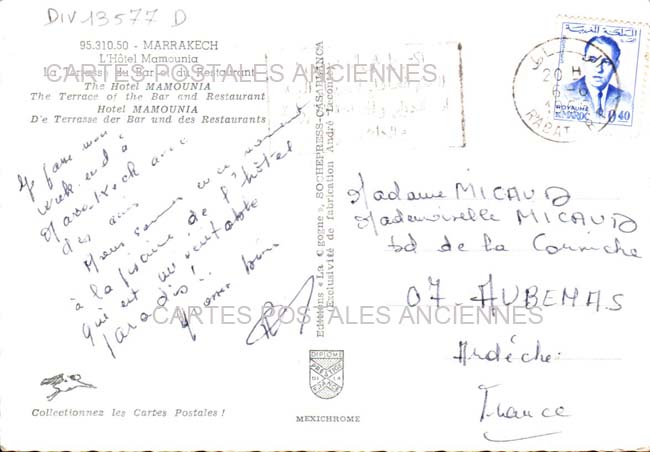 DIV13577 D
95.310.50 - MARRAKECH
L'Hôtel Mamounia
La Terrasse du Bar et du Restaurant
The Hotel MAMOUNIA
The Terrace of the Bar and Restaurant
Hotel MAMOUNIA
Die Terrasse der Bar und des Restaurants
CARTES POSTALES ANCIENNES
Je passe mon
week end à
Marrakech avec
des amis
Nous sommes en ce moment
à la piscine de l'hôtel
qui est un véritable
paradis!!
Collectionnez les Cartes Postales !
Editions « La Cigogne », SOCHEPRESS-CASABLANCA
Exclusivité de fabrication André Leconte
DIPLOME
PRESTIGE
DE LA
FRANCE
MEXICHROME
20 H
RABAT
ROYAUME
DU MAROC
0,40
Madame MICAUD
Mademoiselle MICAUD
bd de la Corniche
07 - AUBENAS
Ardèche
France
CARTES POSTALES ANCIENNES